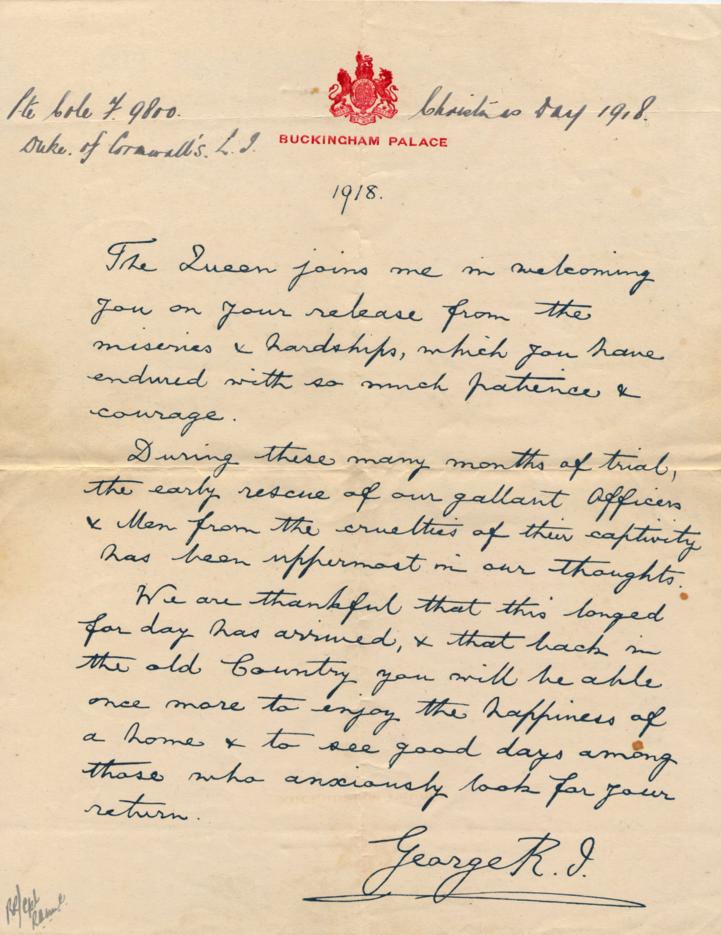 Pte Cole F. 9800.
Christmas Day 1918.
Duke. of Cornwall's. L. I.
BUCKINGHAM PALACE
1918.
The Queen joins me in welcoming
you on your release from the
miseries & hardships, which you have
endured with so much patience &
courage.
During these many months of trial,
the early rescue of our gallant Officers
& Men from the cruelties of their captivity
has been uppermost in our thoughts.
We are thankful that this longed
for day has arrived, & that back in
the old Country you will be able
once more to enjoy the happiness of
a home & to see good days among
those who anxiously look for your
return.
George R. I.